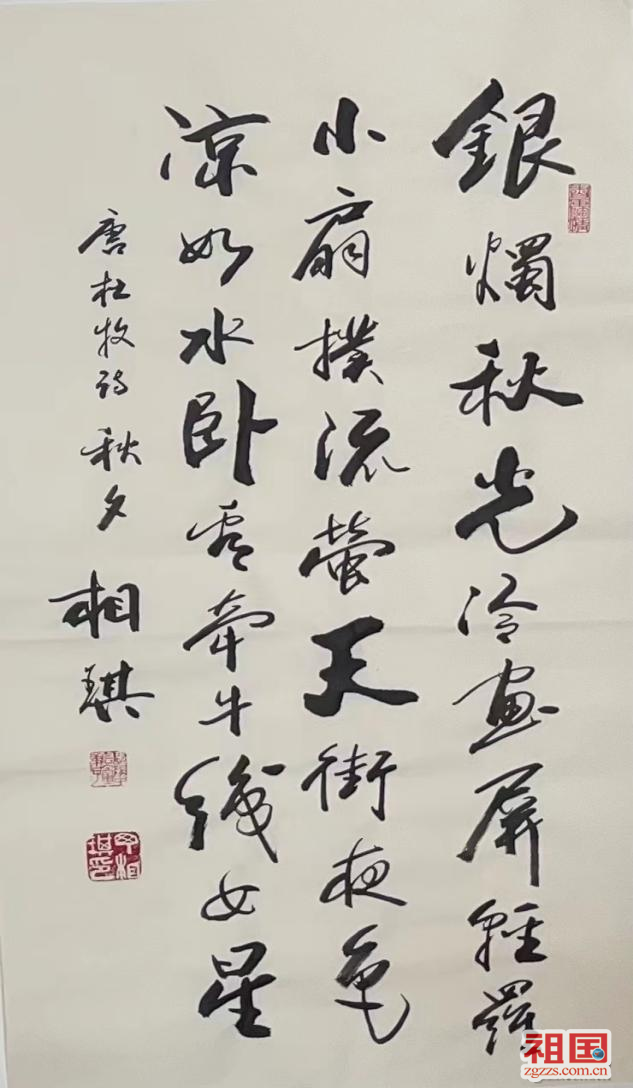 銀燭秋光冷畫屏輕羅
小扇撲流螢天街夜色
涼如水卧看牽牛織女星
唐杜牧诗秋夕
相琪
祖国
zgzzs.com.cn